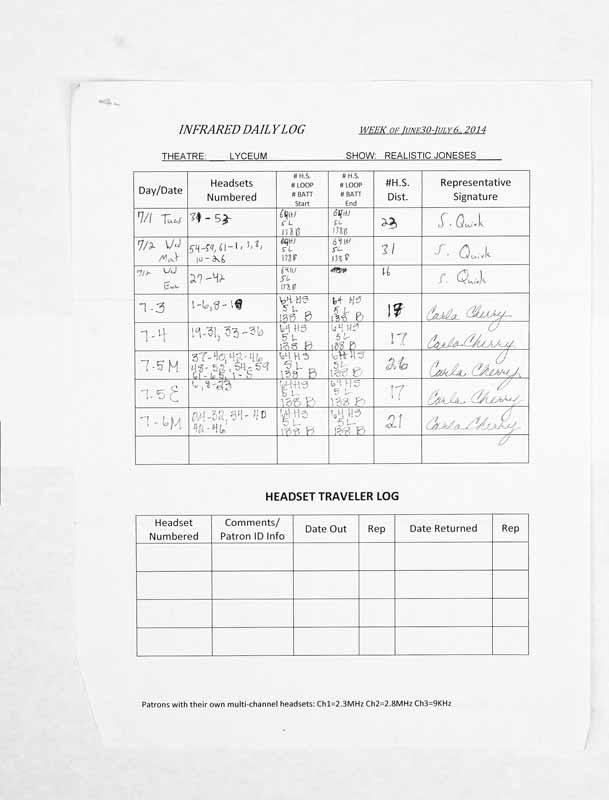 INFRARED DAILY LOG WEEK OF JUNE30-JULY 6, 2014
THEATRE: LYCEUM SHOW: REALISTIC JONESES
Day/Date Headsets Numbered # H.S. # LOOP # BATT Start # H.S. # LOOP # BATT End #H.S. Dist. Representative Signature
7/1 Tues - 53 64H 5L 138B 64H 5L 138B 23 S. Quirk
7/2 Wed Mat 54-59, 61-1, 3, 8, 10-26 64H 5L 138B 64H 5L 138B 31 S. Quirk
7/2 Wd Eve 27-42 64H 5L 138B 16 S. Quirk
7-3 1-6, 8-18 64 HS 5 L 138 B 64 HS 5 L 138 B Carla Cherry
7-4 19-31, 33-36 64 HS 5 L 138 B 64 HS 5 L 138 B 17 Carla Cherry
7-5M 37-40, 42-46 48-52, 54-59 61-65, 1-5 64 HS 5 L 138 B 64 HS 5 L 138 B 26 Carla Cherry
7-5E 6, 8-23 64 HS 5 L 138 B 64 HS 5 L 138 B 17 Carla Cherry
7-6M 24-32, 34-40 42-46 64 HS 5 L 138 B 64 HS 5 L 138 B 21 Carla Cherry
HEADSET TRAVELER LOG
Headset Numbered Comments/ Patron ID Info Date Out Rep Date Returned Rep
Patrons with their own multi-channel headsets: Ch1=2.3MHz Ch2=2.8MHz Ch3=9KHz